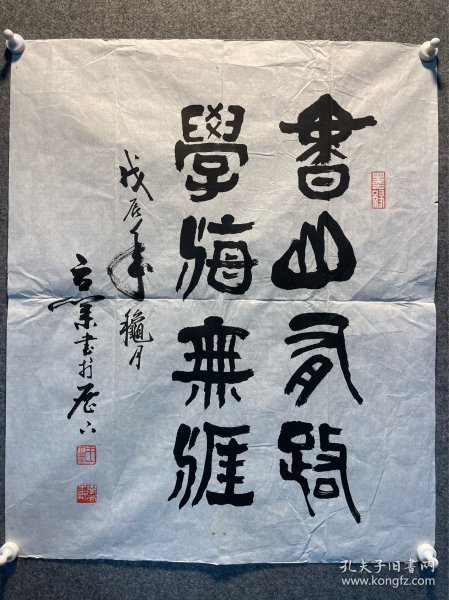 書山有路
學海無涯
戊辰年龝月
書於歷下
孔夫子旧书网
www.kongfz.com